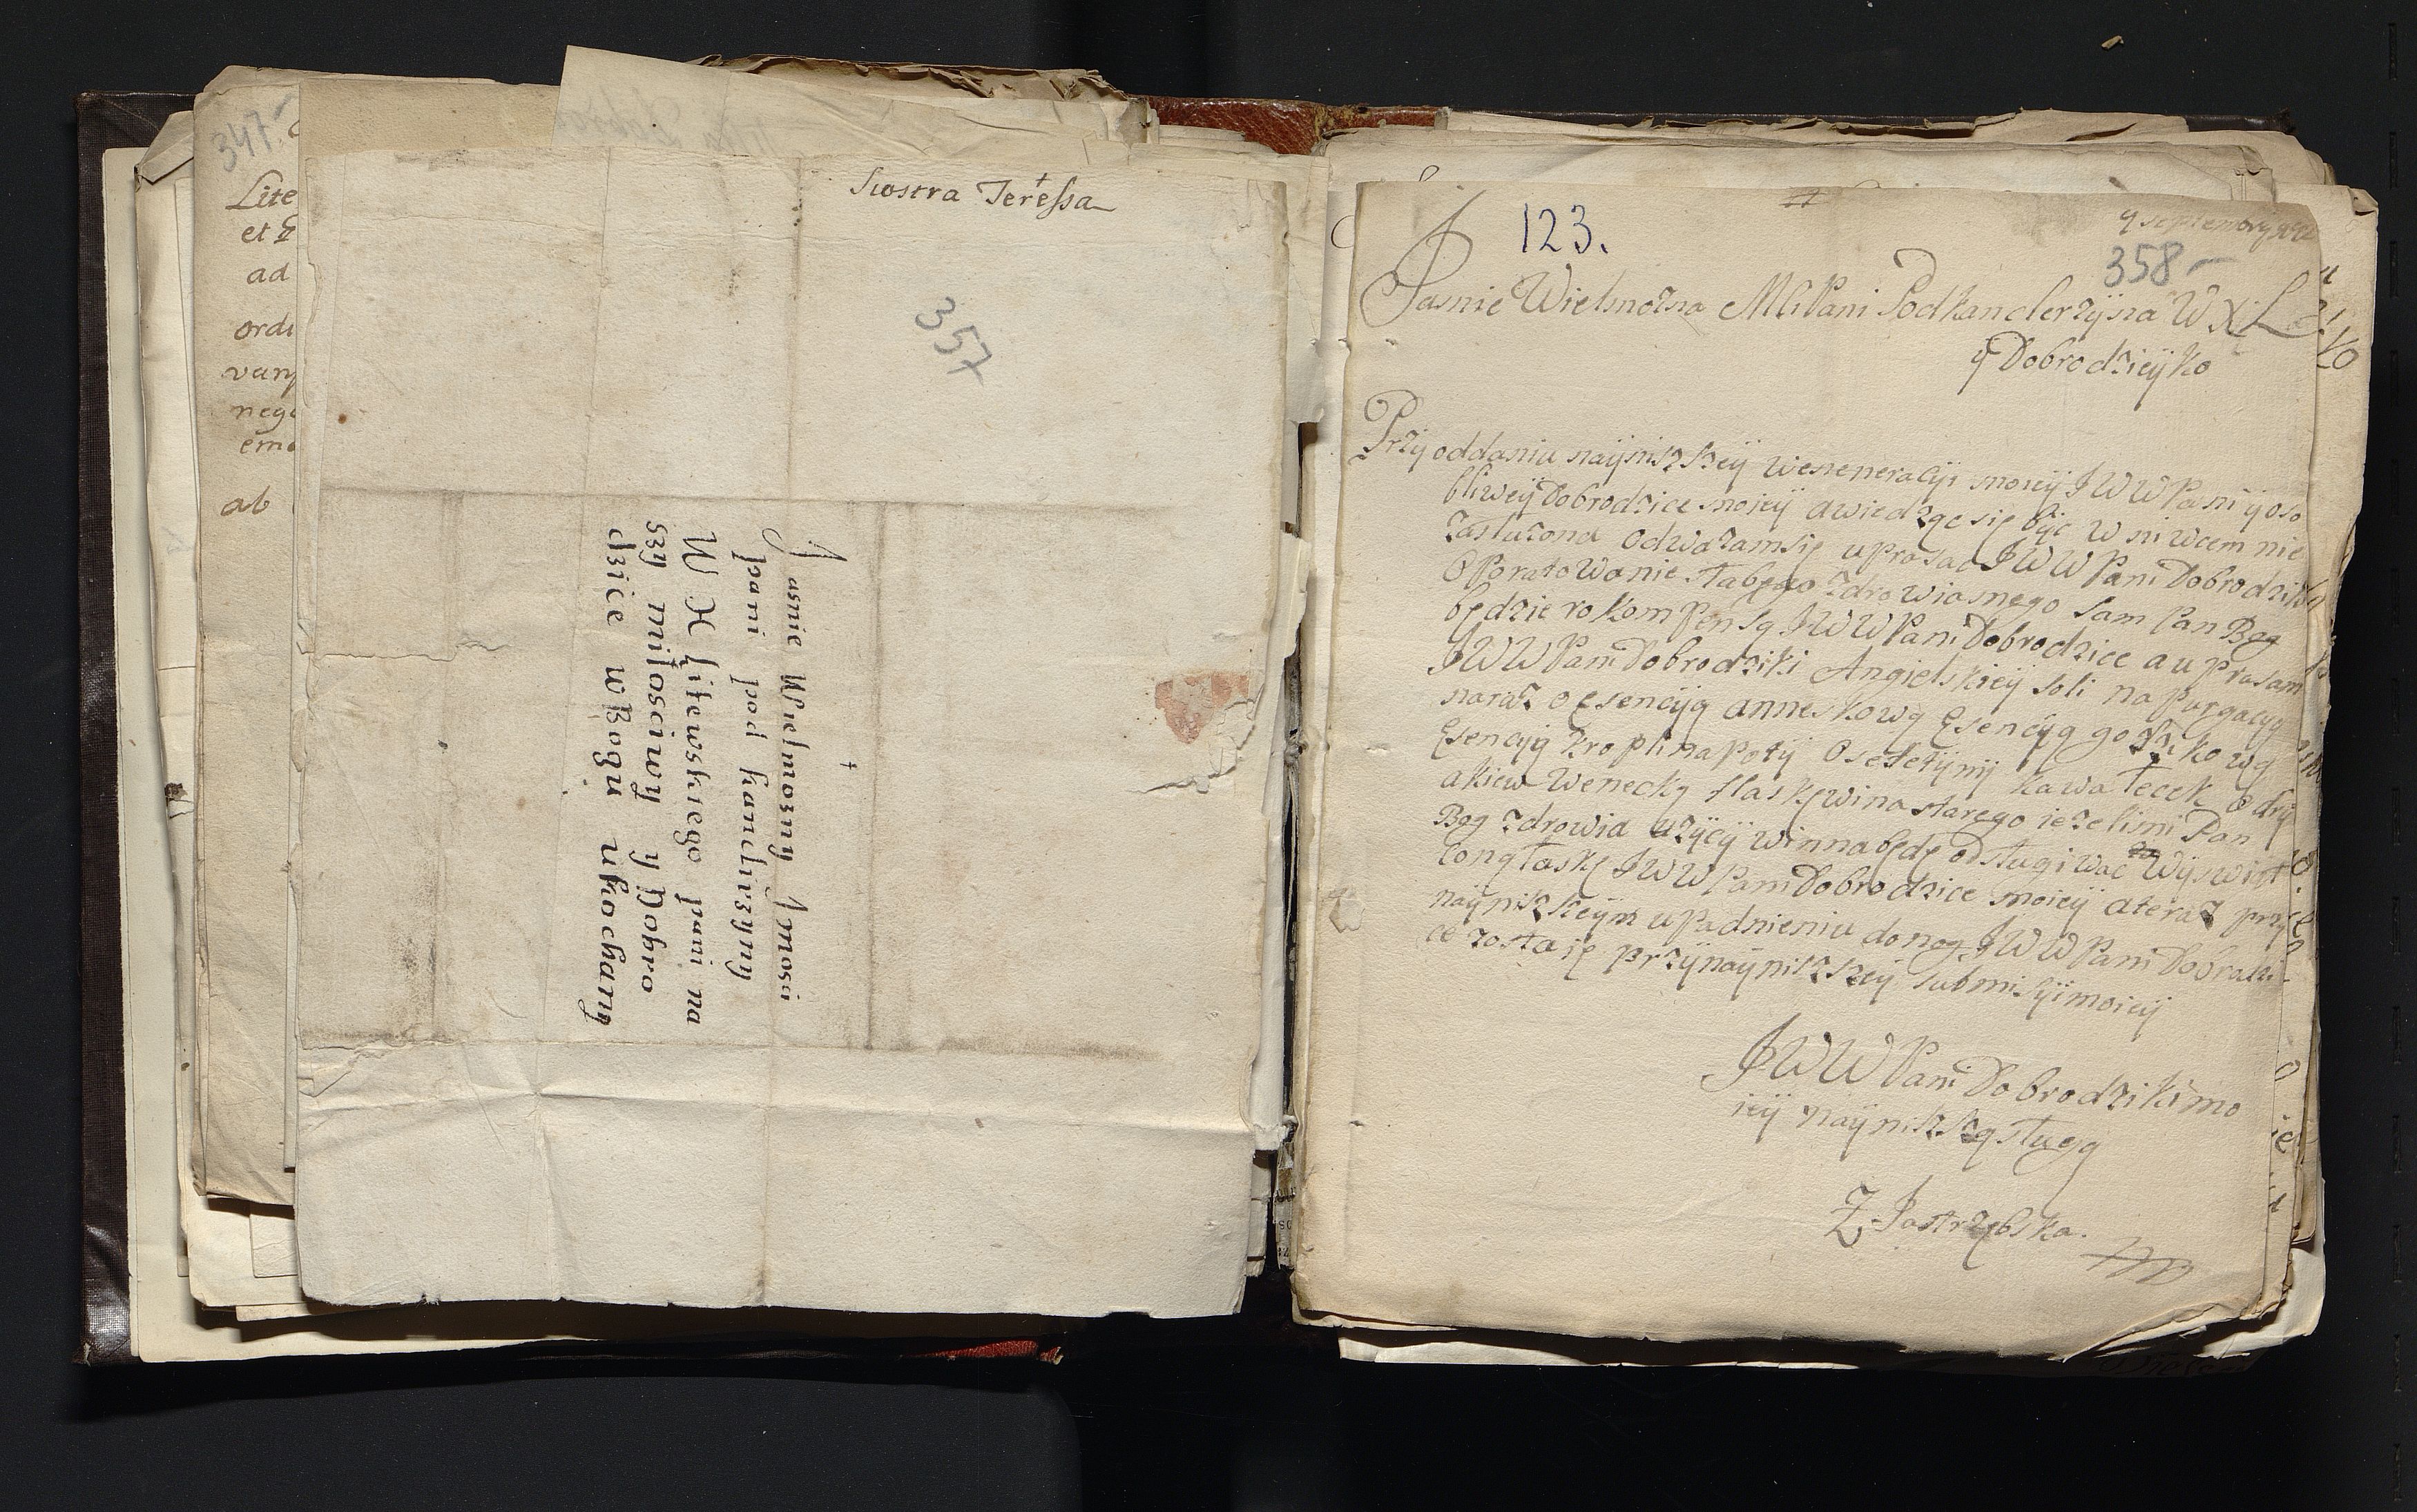 347
Lite
et
ad
ordi
vary
nego
emo
ab
Siostra Teressa
357
Jasnie Wielmozny Jmosci
pani pod kanclirzyny
W X Litewskiego pani na
szy miłosciwy y Dobro
dzice w Bogu ukochany
123.
9 septembry
358
Jasnie Wielmozna MCi Pani Podkanclerzÿna W X L
ÿ Dobrodzieÿko
Przÿ oddaniu naÿniszszeÿ weneneracÿi moieÿ J W W Pani ÿ oso
bliweÿ Dobrodzice moieÿ a wiedząc się bÿc w ni wcem nie
zasłuzona odwazam się uprasac J W W Pani Dobrodziki
o Poratowanie słabego zdrowia mego sam Pan Bog
będzie rokompensą J W W Pani Dobrodzice a uprasam
J W W Pani Dobrodziki Angielskieÿ soli na purgacyą
naraz o Esencÿą anneskową Esencÿą gozdzikową
Esencÿą kropli na potÿ o sekretÿnÿ kawałecek o drÿ
akiew wenecką flaskę wina starego iezeli mi Pan
Bog zdrowia uzÿcÿ winna będę odsługiwac wÿswiad
coną łaskę J W W Pani Dobrodzice moieÿ a teraz przÿ
naÿniszszeÿm upadnieniu do nog J W W Pani Dobrodzi
ce zostaię przÿ naÿniszszeÿ submisÿi moieÿ
J W W Pani Dobrodziki mo
ieÿ naÿniszszą sługą
Z Jastrzębska.